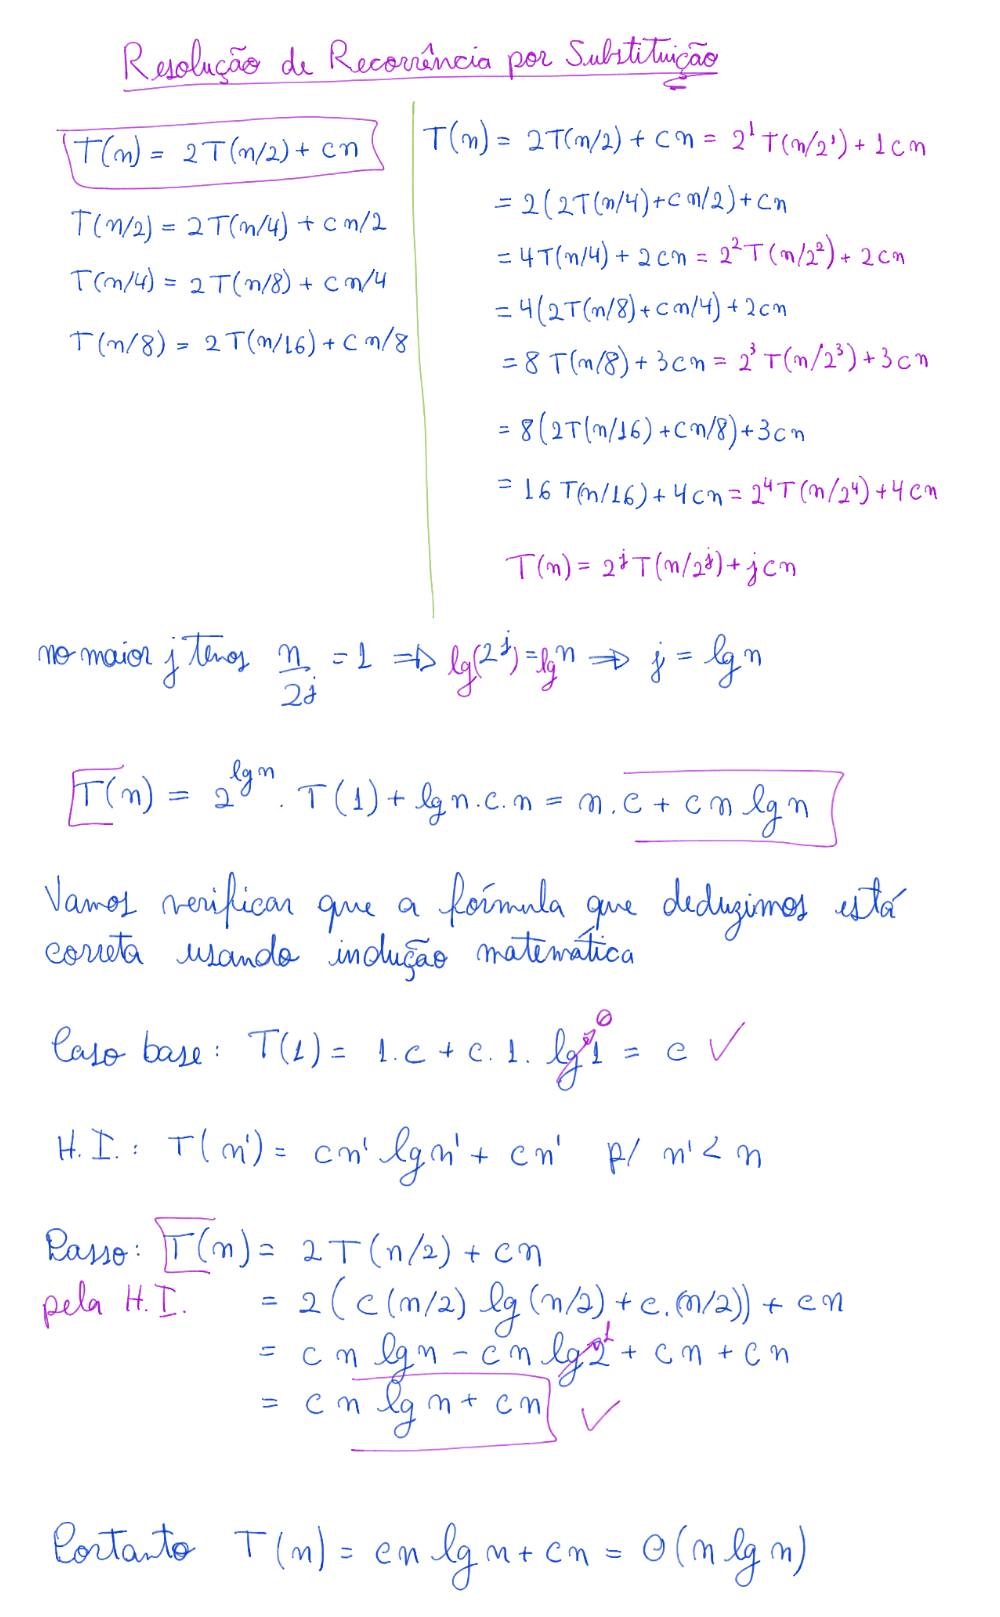 Resolução de Recorrência por Substituição
T(n) = 2T(n/2) + cn
T(n/2) = 2T(n/4) + cn/2
T(n/4) = 2T(n/8) + cn/4
T(n/8) = 2T(n/16) + cn/8
T(n) = 2T(n/2) + cn = 2¹T(n/2¹) + 1cn
= 2(2T(n/4)+cn/2)+cn
= 4T(n/4) + 2cn = 2²T(n/2²) + 2cn
= 4(2T(n/8)+cn/4)+2cn
= 8T(n/8) + 3cn = 2³T(n/2³)+3cn
= 8(2T(n/16)+cn/8)+3cn
= 16T(n/16)+4cn = 2⁴T(n/2⁴)+4cn
T(n) = 2^j T(n/2^j) + jcn
no maior j temos n/2^j = 1 => lg(2^j) = lg n => j = lg n
T(n) = 2^lg n . T(1) + lg n.c.n = n.c + cn lg n
Vamos verificar que a fórmula que deduzimos está
correta usando indução matemática
Caso base: T(1) = 1.c + c.1. lg 1 0 = c ✓
H.I.: T(n') = cn' lg n' + cn' p/ n' < n
Passo: T(n) = 2T(n/2) + cn
pela H.I. = 2(c(n/2) lg(n/2) + c.(n/2)) + cn
= cn lg n - cn lg 2 1 + cn + cn
= cn lg n + cn ✓
Portanto T(n) = cn lg n + cn = O(n lg n)